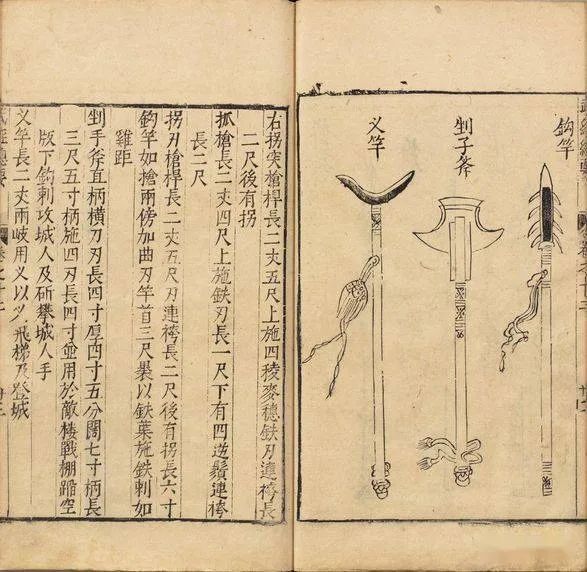 鈎竿
剉子斧
义竿
右拐突槍桿長二丈五尺上施四稜麥穗鉄刃連袴長
二尺後有拐
抓槍長二丈四尺上施鉄刃長一尺下有四逆鬚連袴
長二尺
拐刃槍桿長二丈五尺刃連袴長二尺後有拐長六寸
鈎竿如槍兩傍加曲刃竿首三尺裹以鉄葉施鉄刺如
雞距
剉手斧直柄橫刃刃長四寸厚四寸五分闊七寸柄長
三尺五寸柄施四刃長四寸並用於敵楼戰棚蹈空
版下鈎刺攻城人及斫攀城人手
义竿長二丈兩岐用义以义飛梯及登城